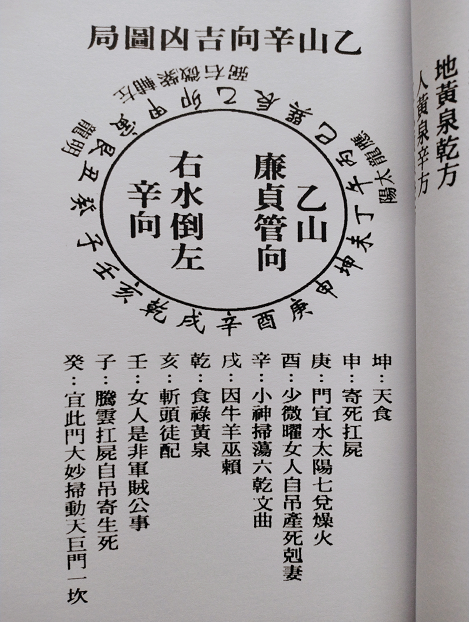 地黃泉乾方
人黃泉辛方
乙山辛向吉凶圖局
左輔紫微右弼
應龍太陽
明龍
乙辰巽巳丙午丁未坤申庚酉辛戌乾亥壬子癸丑艮寅甲卯
乙山
廉貞管向
右水倒左
辛向
坤：天食
申：寄死扛屍
庚：門宜水太陽七兌燥火
酉：少微曜女人自吊產死剋妻
辛：小神掃蕩六乾文曲
戌：因牛羊巫賴
乾：食祿黃泉
亥：斬頭徒配
壬：女人是非軍賊公事
子：騰雲扛屍自吊寄生死
癸：宜此門大妙掃動天巨門一坎